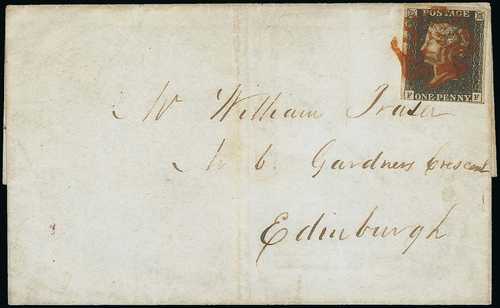 POSTAGE
F ONE PENNY F
Mr William Fraser
No 6. Gardners Crescent
Edinburgh